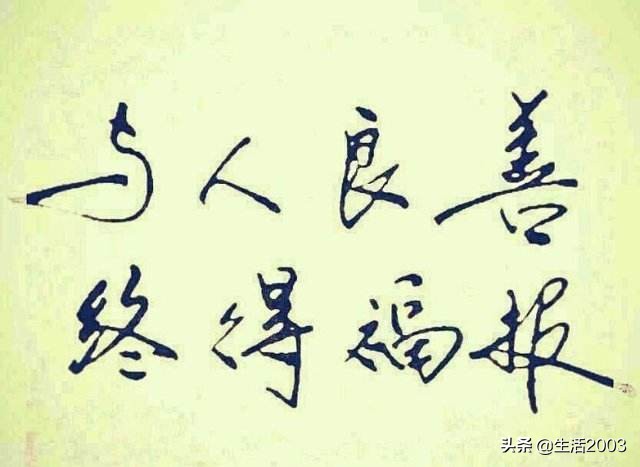 与人良善
终得福报
头条 @生活2003